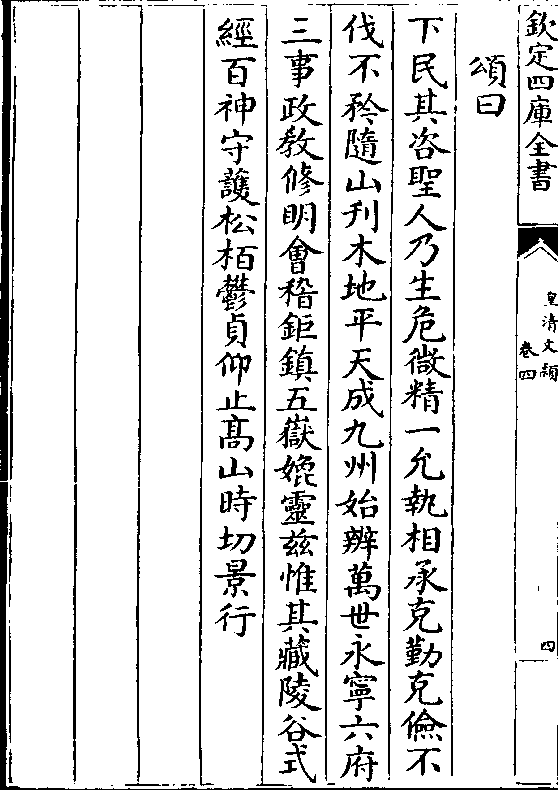 欽定四庫全書
皇清文穎
卷四
四
頌曰
下民其咨聖人乃生危微精一允執相承克勤克儉不
伐不矜隨山刋木地平天成九州始辨萬世永寧六府
三事政教修明會稽鉅鎮五嶽媲靈兹惟其藏陵谷式
經百神守護松栢鬱貞仰止髙山時切景行